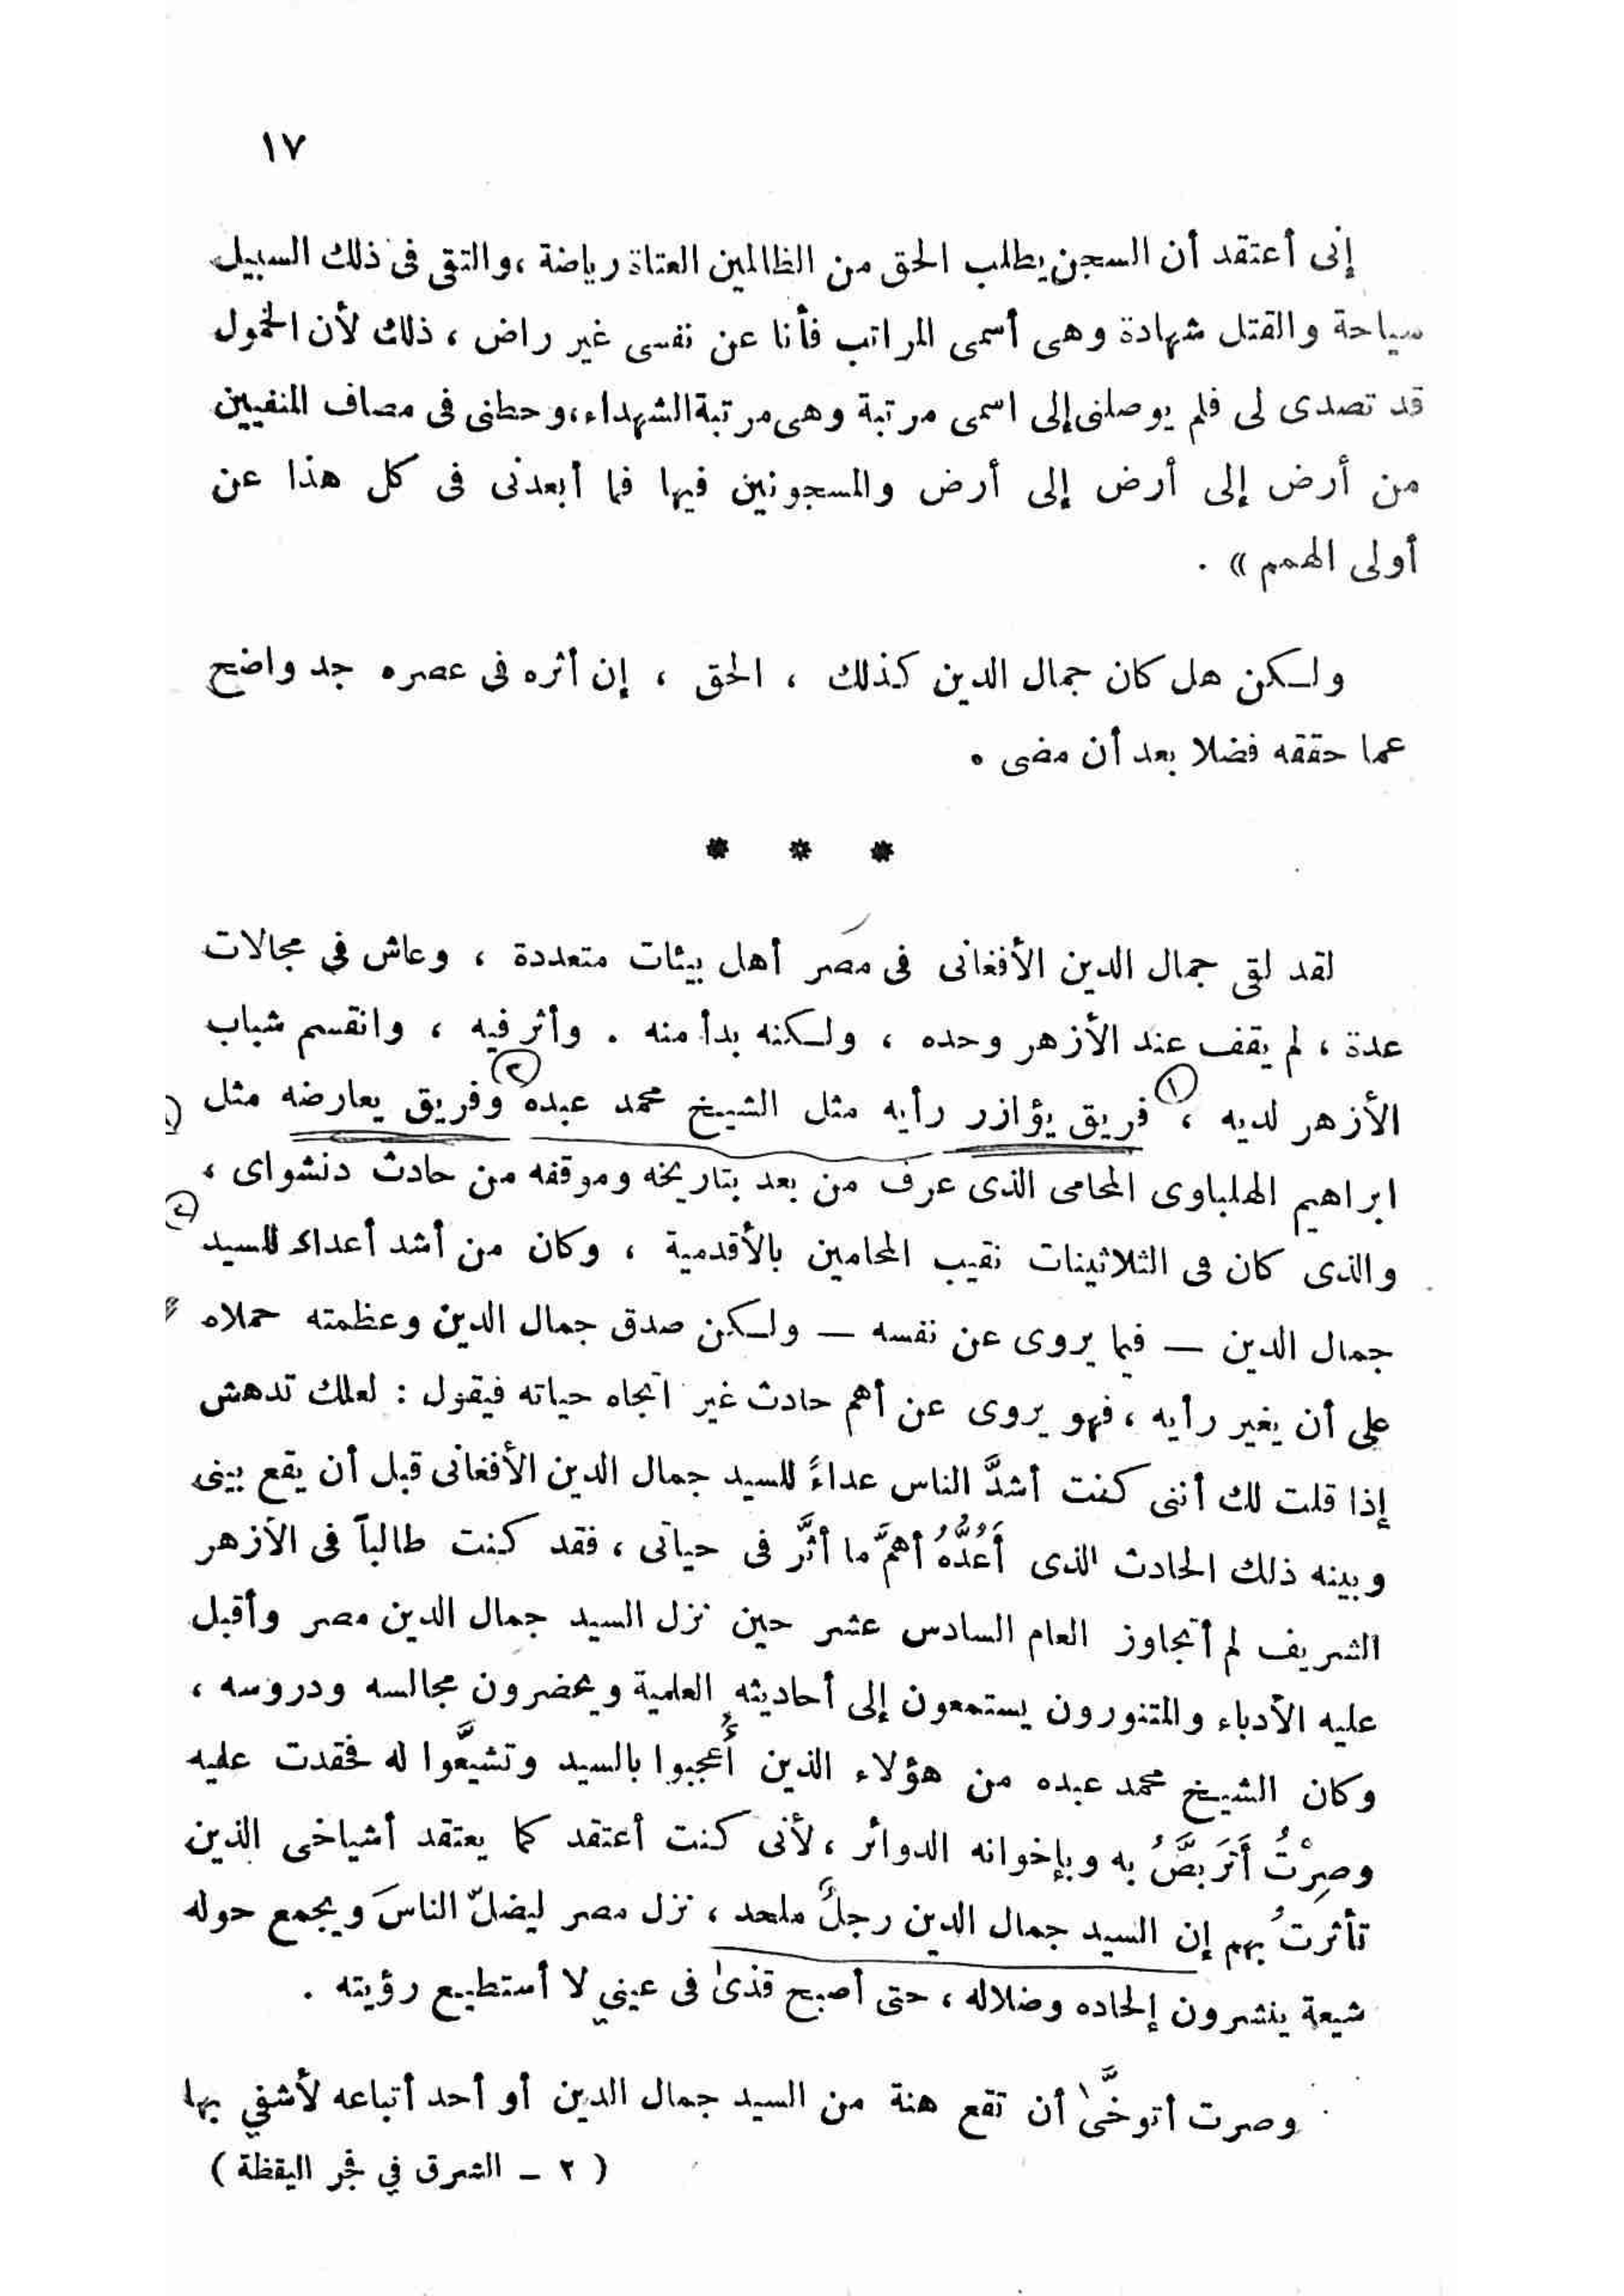 ١٧
إنى أعتقد أن السجن يطلب الحق من الظالمين العتاة رياضة ، والتقى فى ذلك السبيل
سياحة والقتل شهادة وهى أسمى المراتب فأنا عن نفسى غير راض ، ذلك لأن الخمول
قد تصدى لى فلم يوصلنى إلى اسمى مرتبة وهى مرتبة الشهداء ، وحطنى فى مصاف المنفيين
من أرض إلى أرض إلى أرض والمسجونين فيها فما أبعدنى فى كل هذا عن
أولى الهمم » .
ولكن هل كان جمال الدين كذلك ، الحق ، إن أثره فى عصره جد واضح
عما حققه فضلا بعد أن مضى .
* * *
لقد لقى جمال الدين الأفغانى فى مصر أهل بيئات متعددة ، وعاش في مجالات
عدة ، لم يقف عند الأزهر وحده ، ولكنه بدأ منه . وأثر فيه ، وانقسم شباب
الأزهر لديه ، (١) فريق يؤازر رأيه مثل الشيخ محمد عبده (٢) وفريق يعارضه مثل
ابراهيم الهلباوى المحامى الذى عرف من بعد بتاريخه وموقفه من حادث دنشواى ،
والذى كان فى الثلاثينات نقيب المحامين بالأقدمية ، وكان من أشد أعداء للسيد
جمال الدين — فيما يروى عن نفسه — ولكن صدق جمال الدين وعظمته حملاه
على أن يغير رأيه ، فهو يروى عن أهم حادث غير اتجاه حياته فيقول : لعلك تدهش
إذا قلت لك أننى كنت أشدَّ الناس عداءً للسيد جمال الدين الأفغانى قبل أن يقع بينى
وبينه ذلك الحادث الذى أَعُدُّهُ أهمَّ ما أثَّر فى حياتى ، فقد كنت طالباً فى الأزهر
الشريف لم أتجاوز العام السادس عشر حين نزل السيد جمال الدين مصر وأقبل
عليه الأدباء والمتنورون يستمعون إلى أحاديثه العلمية ويحضرون مجالسه ودروسه ،
وكان الشيخ محمد عبده من هؤلاء الذين أُعجبوا بالسيد وتشيَّعوا له فحقدت عليه
وصِرْتُ أَتَرَبَّصُ به وبإخوانه الدوائر ، لأنى كنت أعتقد كما يعتقد أشياخى الذين
تأثرتُ بهم إن السيد جمال الدين رجلٌ ملحد ، نزل مصر ليضلّ الناسَ ويجمع حوله
شيعة ينشرون إلحاده وضلاله ، حتى أصبح قذىً فى عيني لا أستطيع رؤيته .
وصرت أتوخَّى أن تقع هنة من السيد جمال الدين أو أحد أتباعه لأشفي بها
( ٢ — الشرق في فجر اليقظة )